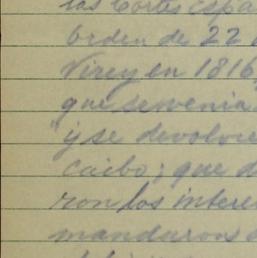 las Cortes espa
orden de 22 d
Virey en 1816,
que se venia
"y se devolvie
caibo; que d
ron los intere
mandaron a